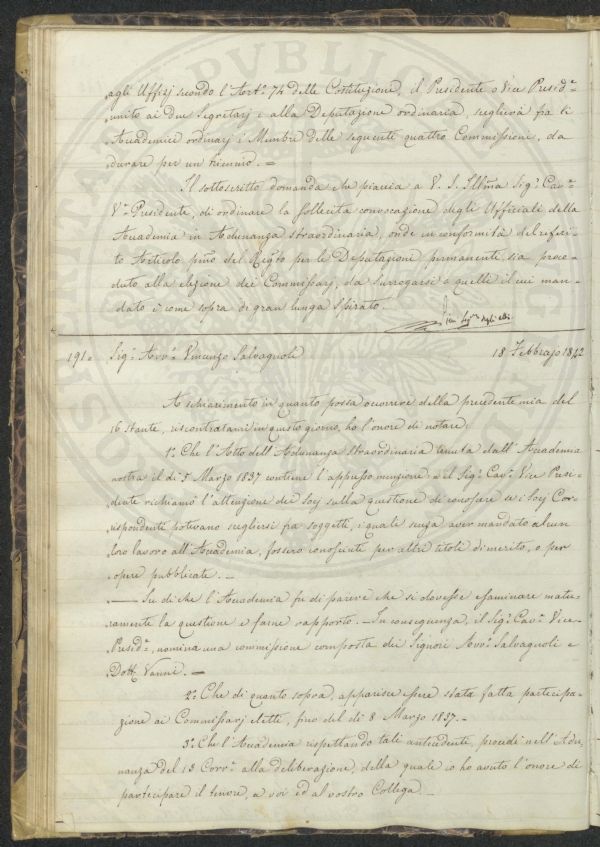 agli Uffizj secondo l'Art.º 74 delle Costituzione, il Presidente o Vice Presid.e
unito ai due Segretarj e alla Deputazione ordinaria, sceglierà fra li
Accademici ordinarj i Membri delle seguenti quattro Commissioni, da
durare per un triennio. =
Il sottoscritto domanda che piaccia a V. S. Illma Sig.r Cav.e
V.e Presidente, di ordinare la sollecita convocazione degli Ufficiali della
Accademia in Adunanza straordinaria, onde in conformità del referi-
to Articolo pmo del Reg.to per le Deputazioni permanenti sia proce-
duto alla elezione dei Commissarj, da surrogarsi a quelli il cui man-
dato è come sopra di gran lunga spirato.
191. Sig.r Avv.o Vincenzo Salvagnoli 18 Febbrajo 1842
A schiarimento in quanto possa occorrere della precedente mia del
16 stante, riscontratami in questo giorno, ho l'onore di notare:
1.º Che l'Atto dell'Adunanza straordinaria tenuta dall'Accademia
nostra il dì 5 Marzo 1837 contiene l'appresso menzione = il Sig.r Cav.e Vice Presi-
dente richiamò l'attenzione dei Socj sulla questione di conoscere se i Socj Cor-
rispondenti potevano scegliersi fra soggetti, i quali senza aver mandato alcun
loro lavoro all'Accademia, fossero conosciuti per altri titoli di merito, o per
opere pubblicate. —
— Su di che l'Accademia fu di parere che si dovesse esaminare matu-
ramente la questione e farne rapporto. — In conseguenza, il Sig.r Cav.e Vice-
Presid.e nomina una commissione composta dei Signori Avv.o Salvagnoli e
Dott. Vanni. —
2.º Che di quanto sopra, apparisce essere stata fatta partecipa-
zione ai Commissarj eletti, fino del dì 8 Marzo 1837. —
3.º Che l'Accademia rispettando tali antecedenti, procedè nell'Adu-
nanza del 13 Corr.e alla deliberazione, della quale io ho avuto l'onore di
partecipare il tenore, a voi ed al vostro Collega —